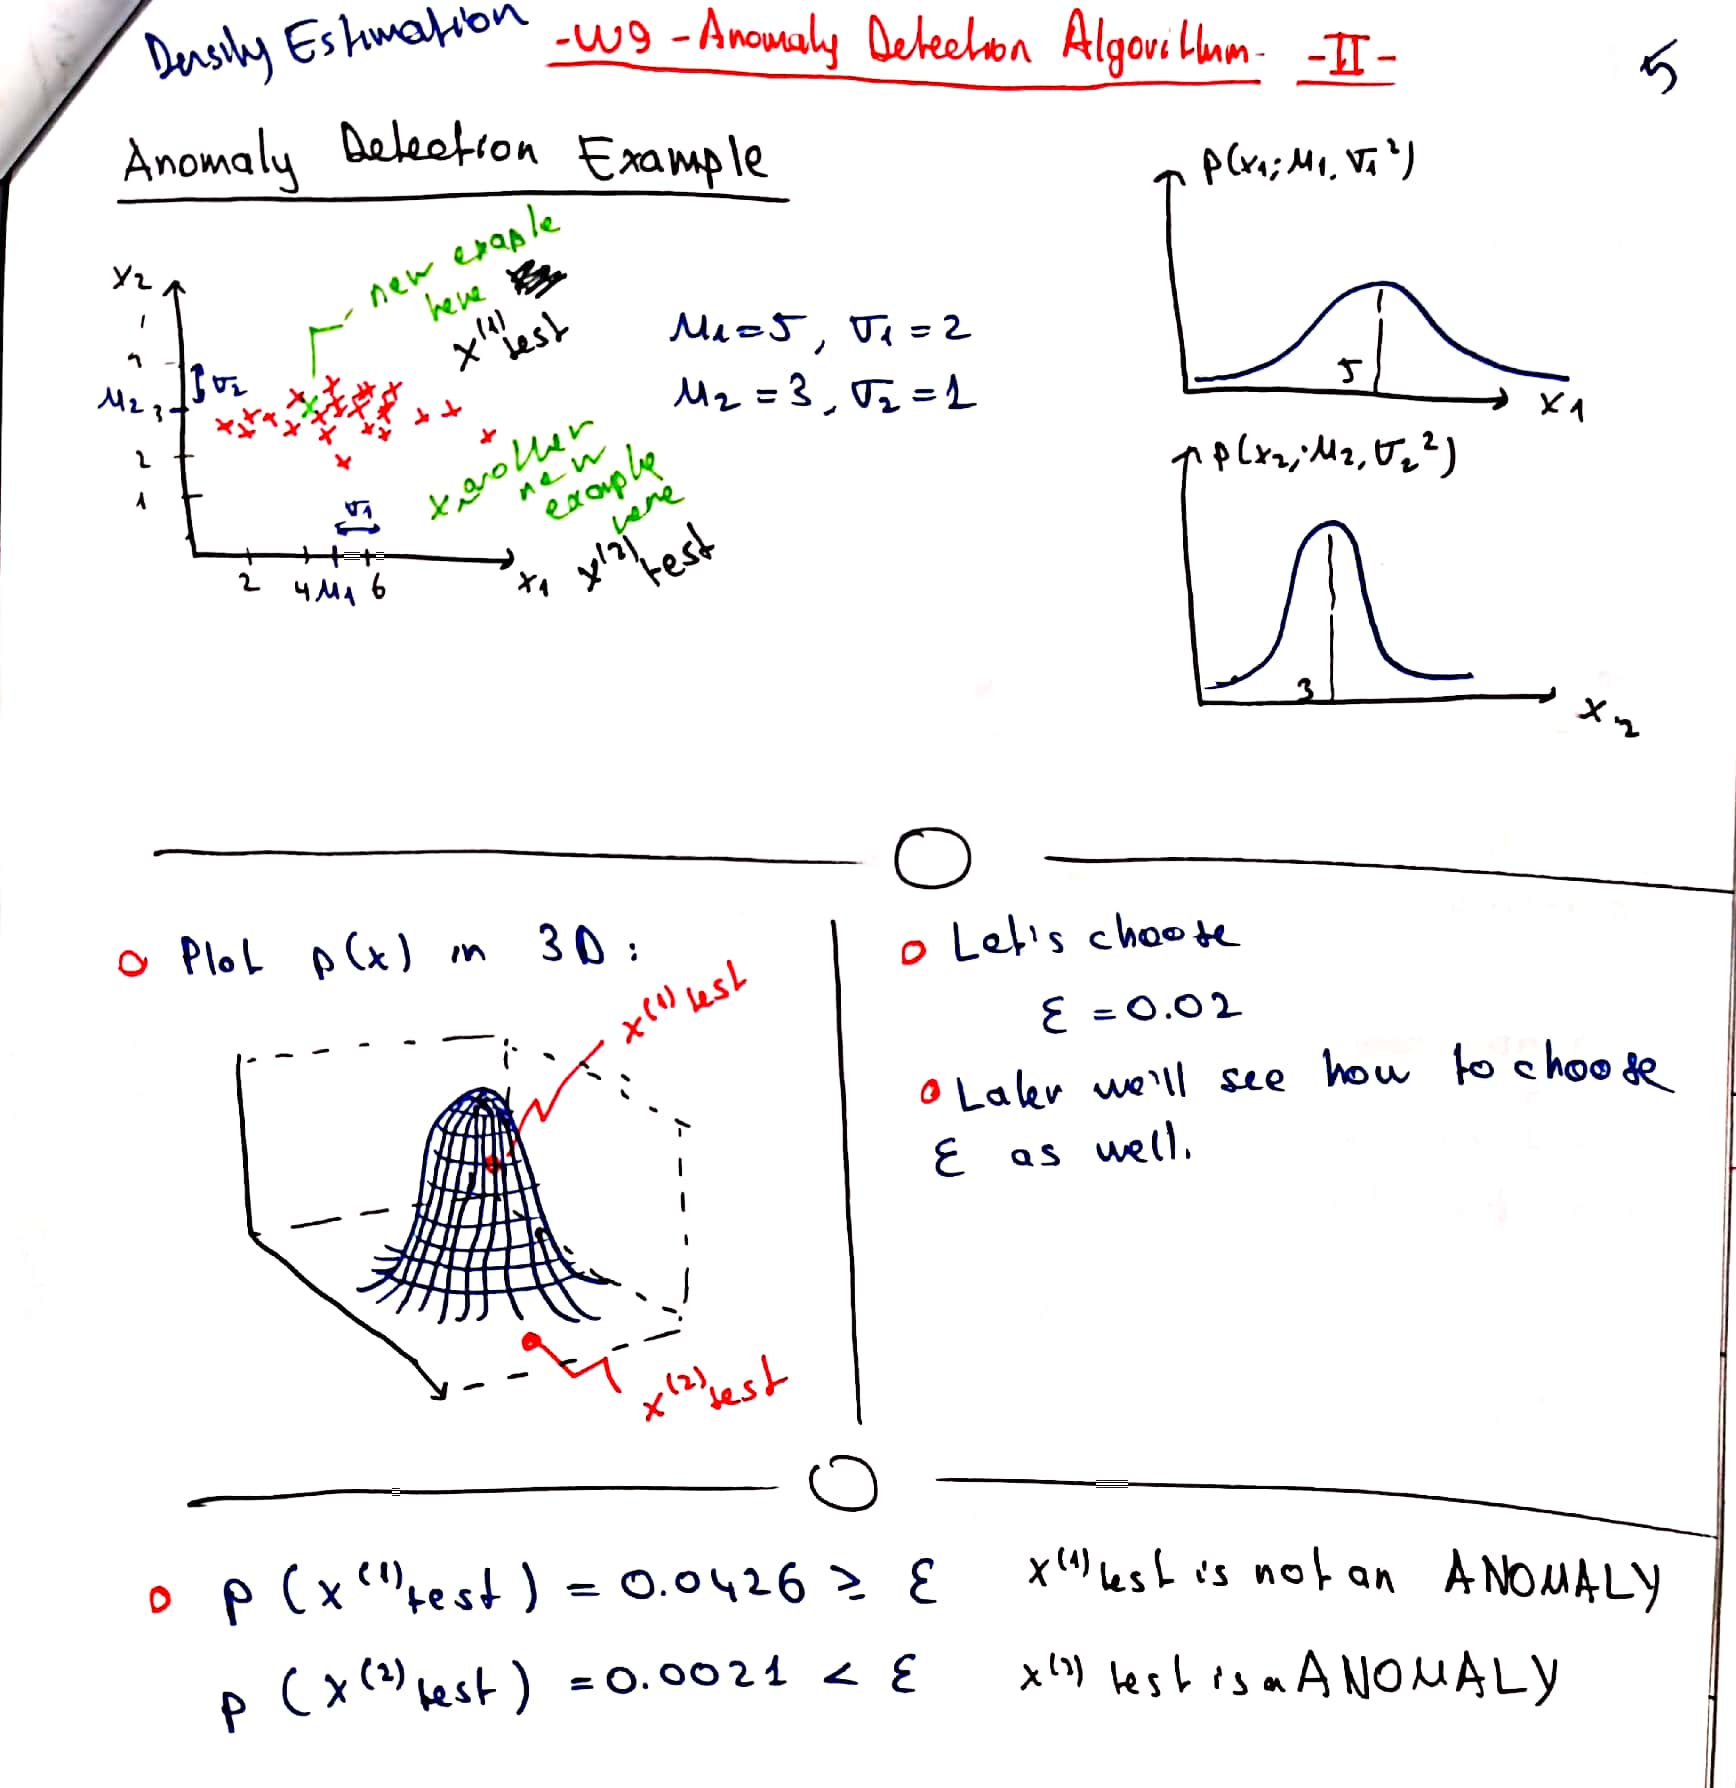 Density Estimation -W9 - Anomaly Detection Algorithm- -II- 5
Anomaly Detection Example
new exaple
here
x⁽¹⁾test
x2
μ2 3
σ2
2
1
σ1
2 4 μ1 6
x1
another
new
example
here
x⁽²⁾test
μ1=5, σ1=2
μ2=3, σ2=1
p(x1; μ1, σ1²)
5
x1
p(x2; μ2, σ2²)
3
x2
Plot p(x) in 3D:
x⁽¹⁾test
x⁽²⁾test
Let's choose
ε = 0.02
Later we'll see how to choose
ε as well.
p(x⁽¹⁾test) = 0.0426 ≥ ε x⁽¹⁾test is not an ANOMALY
p(x⁽²⁾test) = 0.0021 < ε x⁽²⁾test is a ANOMALY